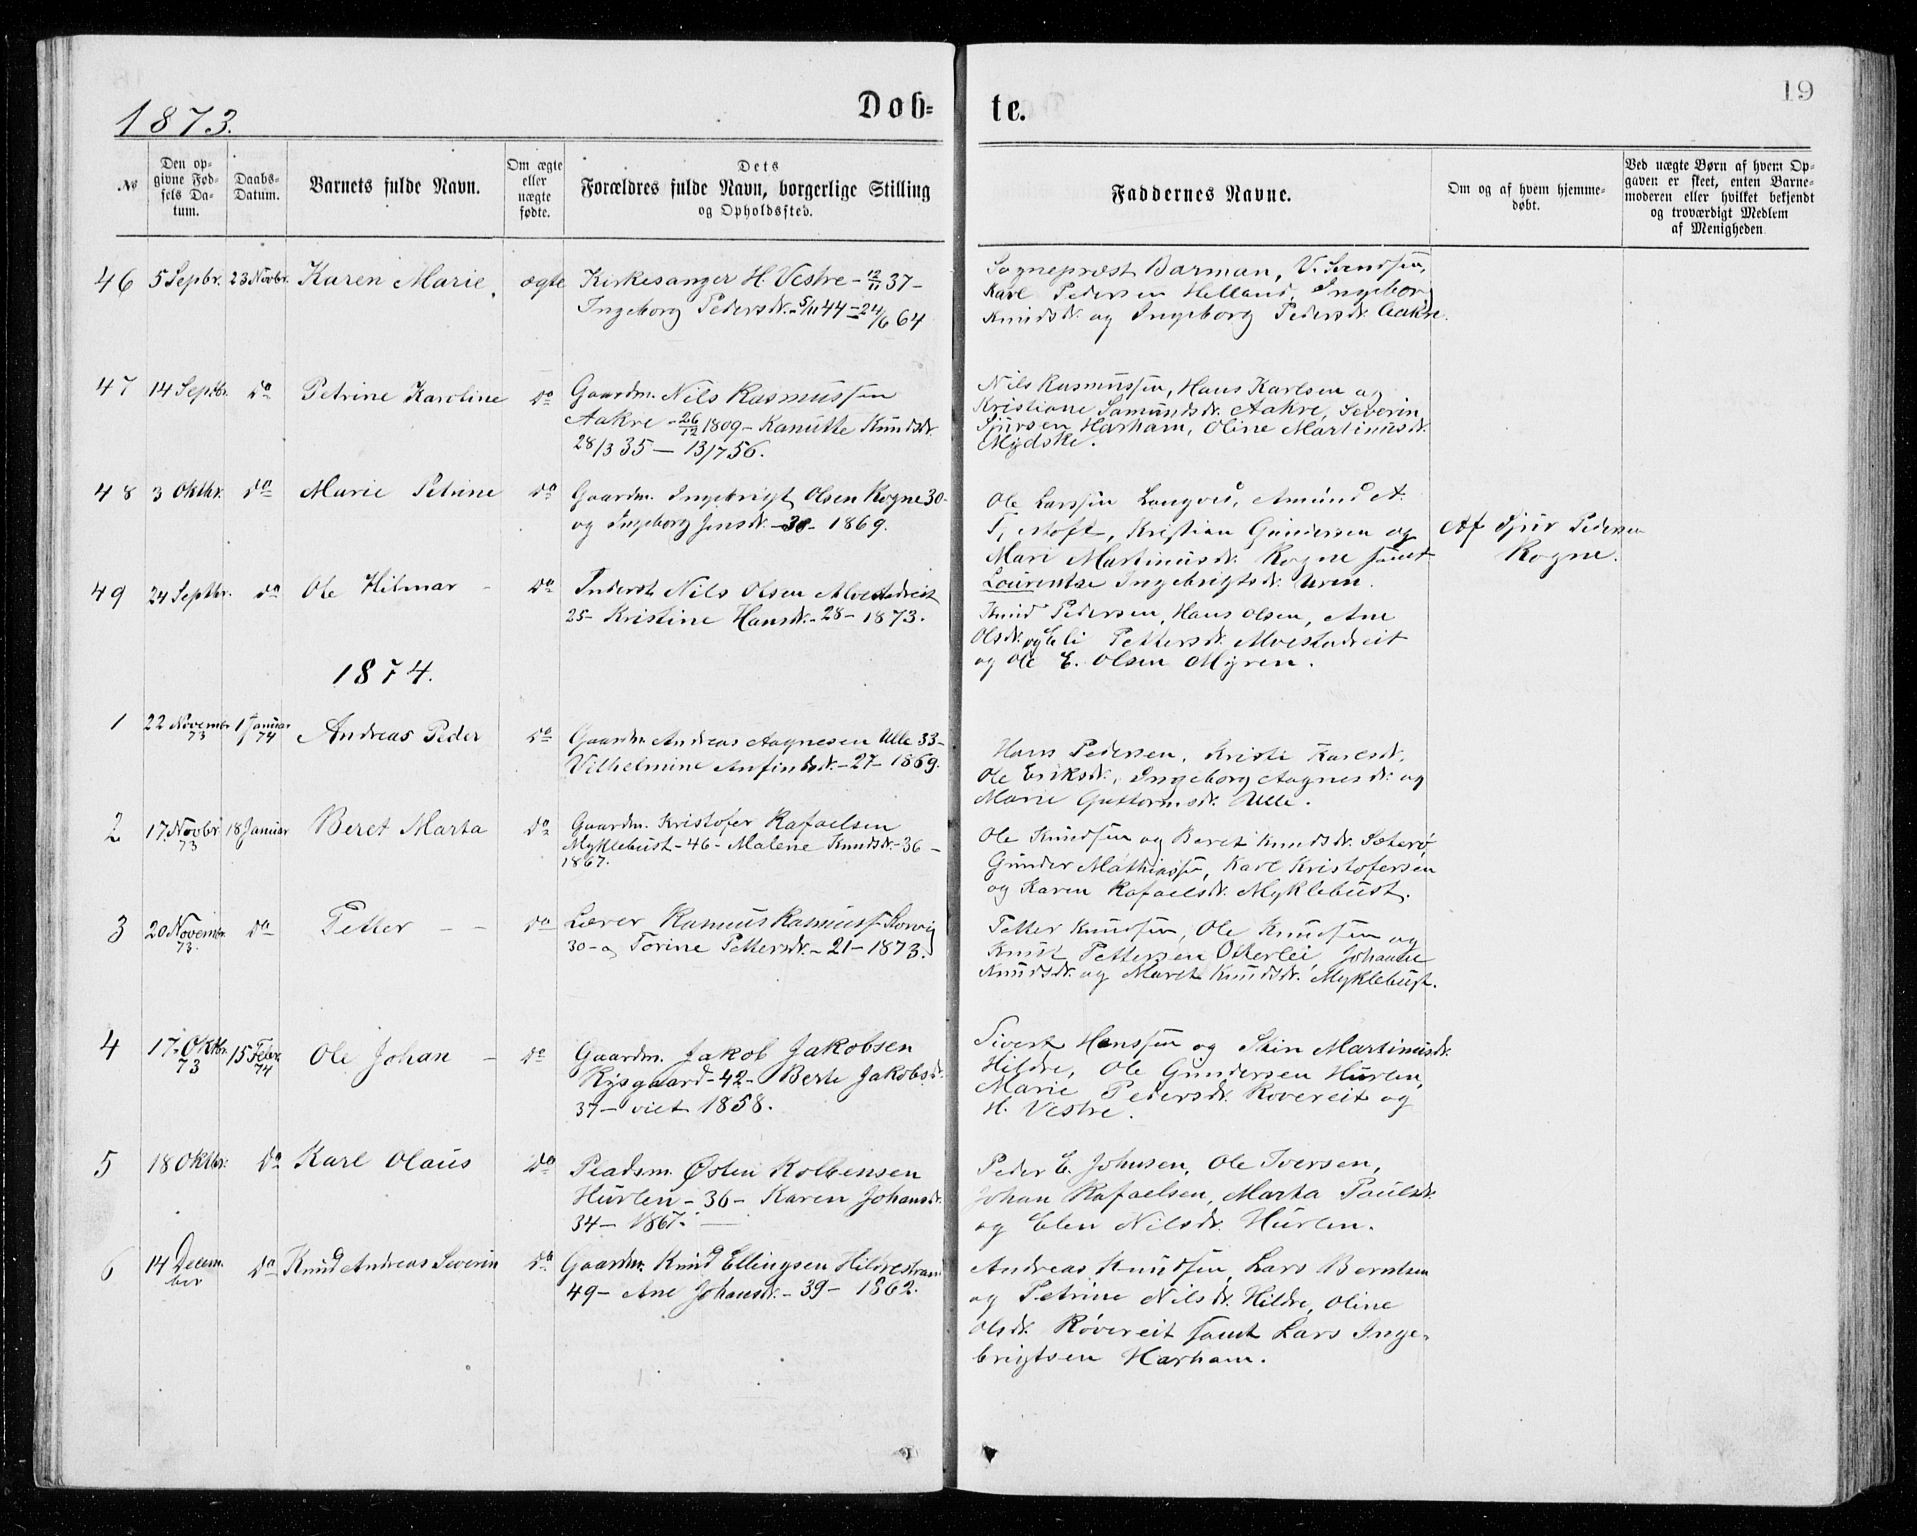 19
1873.
Døb-
te.
No
Den op-
givne Fød-
sels Da-
tum.
Daabs-
Datum.
Barnets fulde Navn.
Om ægte
eller
uægte
fødte.
Dets
Forældres fulde Navn, borgerlige Stilling
og Opholdssted.
Faddernes Navne.
Om og af hvem hjemme-
døbt.
Ved uægte Børn af hvem Op-
gaven er skeet, enten Barne-
moderen eller hvilket bekjendt
og troværdigt Medlem
af Menigheden
46 5 Sepbr. 23 Novbr. Karen Marie. ægte
Kirkesanger H. Vestre - 12/11 37 -
Ingeborg Pedersdr. - 5/11 44 - 24/6 64
Sognepræst Barman, V. Svendsen,
Karl Pedersen Helland, Ingeborg
Knudsdr. og Ingeborg Pedersdr. Aakre.
47 14 Septbr. Do Petrine Karoline Do
Gaardm. Nils Rasmussen
Aakre - 26/12 1809 - Kanutte Knudsdr.
28/3 35 - 13/7 56.
Nils Rasmussen, Hans Karlsen og
Kristiane Samundsdr. Aakre, Severin
Sjursen Harham, Oline Martinusdr.
Mydske.
48 3 Oktbr. Do Marie Petrine Do
Gaardm. Ingebrigt Olsen Rogne 30-
og Ingeborg Jensdr. - 38 - 1869.
Ole Larssen Longved, Amund A.
Tjestoft, Kristian Gundersen og
Mari Martinusdr. Rogne samt
Lourentse Ingebrigtsdr. Uren.
Af Sjur Pedersen
Rogne.
49 24 Septbr. Do Ole Hilmar - Do
Inderst Nils Olsen Alvestadreit
25 - Kristine Hansdr. - 28 - 1873.
Knud Pedersen, Hans Olsen, Ane
Olsdr. og Eli Pettersdr. Alvestadreit
og Ole E. Olsen Myren.
1874.
1 22 Novembr. 73 1 Januar 74 Andreas Peder Do
Gaardm. Andreas Aagnesen Ulle 33-
Vilhelmine Anfindsdr. - 27 - 1869.
Hans Pedersen, Kristi Karlsdr.
Ole Eriksdr., Ingeborg Aagnesdr. og
Marie Guttormsdr. Ulle.
2 17. Novbr. 73 18 Januar Beret Marta Do
Gaardm. Kristofer Rafaelsen
Myklebust - 46 - Malene Knudsdr. - 36 -
1867.
Ole Knudsen og Beret Knudsdr. Sæterø
Gunder Mathiassen, Karl Kristofersen
og Karen Rafaelsdr. Myklebust.
3 20 Novembr. 73. Do Petter - - Do
Lærer Rasmus Rasmuss. Skorvig
30 - og Torine Pettersdr. - 21 - 1873.
Petter Knudsen, Ole Knudsen og
Knut Pettersen Otterlei, Johanne
Knudsdr. og Maret Knudsdr. Myklebust.
4 17. Oktbr. 73 15 Febr. 74 Ole Johan - Do
Gaardm. Jakob Jakobsen
Rysgaard - 42 - Berte Jakobsdr.
37 - viet 1858.
Sivert Hanssen og Stin Martinusdr.
Hildre, Ole Gundersen Hurlen,
Marie Pedersdr. Rovereit og
H. Vestre.
5 18 Oktbr. Do Karl Olaus Do
Pladsm. Østen Kolbensen
Hurlen - 36 - Karen Johansdr.
34 - 1867.
Peder E. Johnsen, Ole Iversen,
Johan Rafaelsen, Marta Paulsdr.
og Elen Nilsdr. Hurlen.
6 14 Decem-
ber Do Knud Andreas Severin Do
Gaardm. Knud Ellingsen Hildrestrand
49 - Ane Johansdr. - 39 - 1862.
Andreas Knudsen, Lars Berntsen
og Petrine Nilsdr. Hildre, Oline
Olsdr. Røvereit samt Lars Inge-
brigtsen Harham.